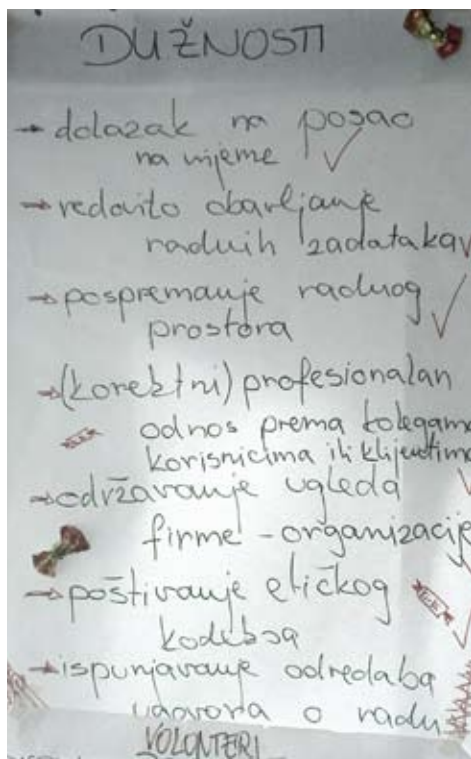 DUŽNOSTI
→ dolazak na posao
na vrijeme ✓
→ redovito obavljanje
radnih zadataka ✓
→ pospremanje radnog
prostora ✓
→ (korektni) profesionalan
odnos prema kolegama
korisnicima ili klijentima
→ održavanje ugleda
firme - organizacije
→ poštivanje etičkog
kodeksa
→ ispunjavanje odredaba
ugovora o radu
VOLONTERI